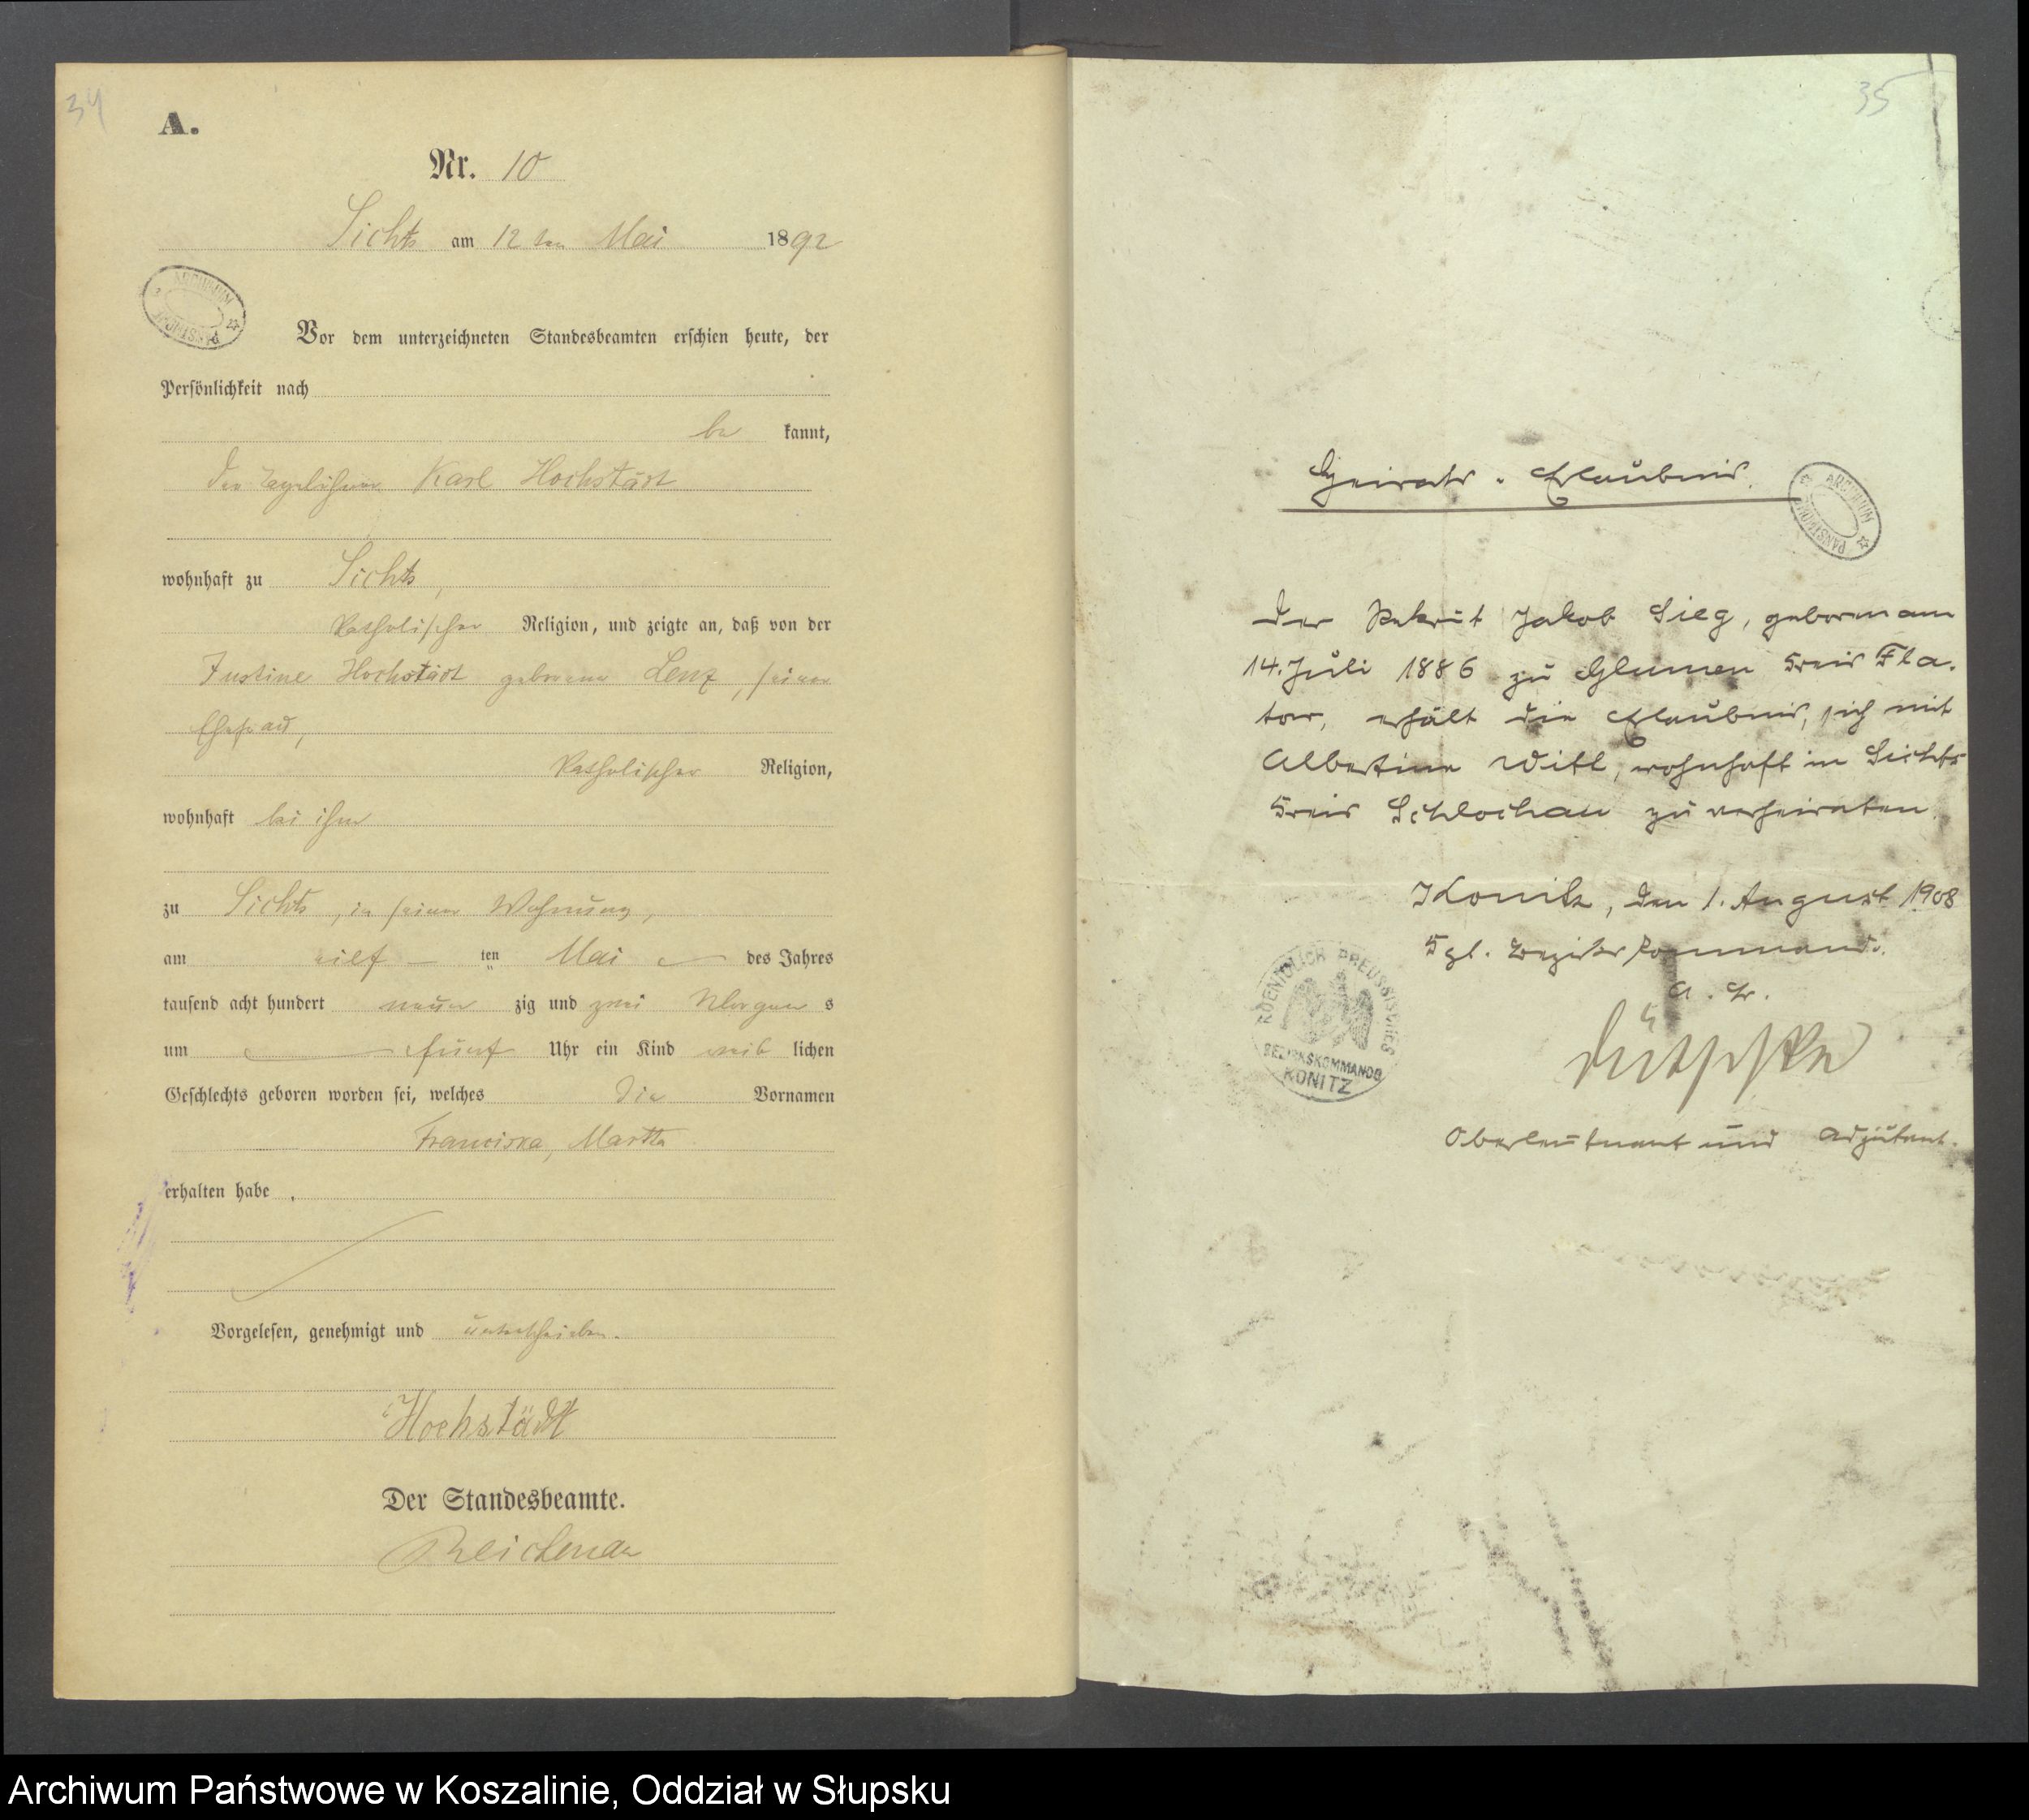 34
A.
Nr. 10
Sichts am 12ten Mai 1892
ARCHIWUM PAŃSTWOWE
Vor dem unterzeichneten Standesbeamten erschien heute, der
Persönlichkeit nach
be kannt,
der Tagelöhner Karl Hochstädt
wohnhaft zu Sichts,
katholischer Religion, und zeigte an, daß von der
Justine Hochstädt geborene Lenz, seiner
Ehefrau,
katholischer Religion,
wohnhaft bei ihm
zu Sichts, in seiner Wohnung,
am eilf ten Mai des Jahres
tausend acht hundert neun zig und zwei Morgen s
um fünf Uhr ein Kind weib lichen
Geschlechts geboren worden sei, welches die Vornamen
Franciska, Martha
erhalten habe .
Vorgelesen, genehmigt und unterschrieben.
Hochstädt
Der Standesbeamte.
35
Heirats-Erlaubnis.
ARCHIWUM PAŃSTWOWE
Der Rekrut Jakob Sieg, geboren am
14. Juli 1886 zu Glumen Kreis Fla-
tow, erhält die Erlaubnis, sich mit
Albertine Witt, wohnhaft in Sichts
Kreis Schlochau zu verheiraten.
Konitz, den 1. August 1908
Kgl. Bezirkskommando.
KOENIGLICH PREUSSISCHES
BEZIRKSKOMMANDO
KONITZ
Oberleutnant und Adjutant.
Archiwum Państwowe w Koszalinie, Oddział w Słupsku